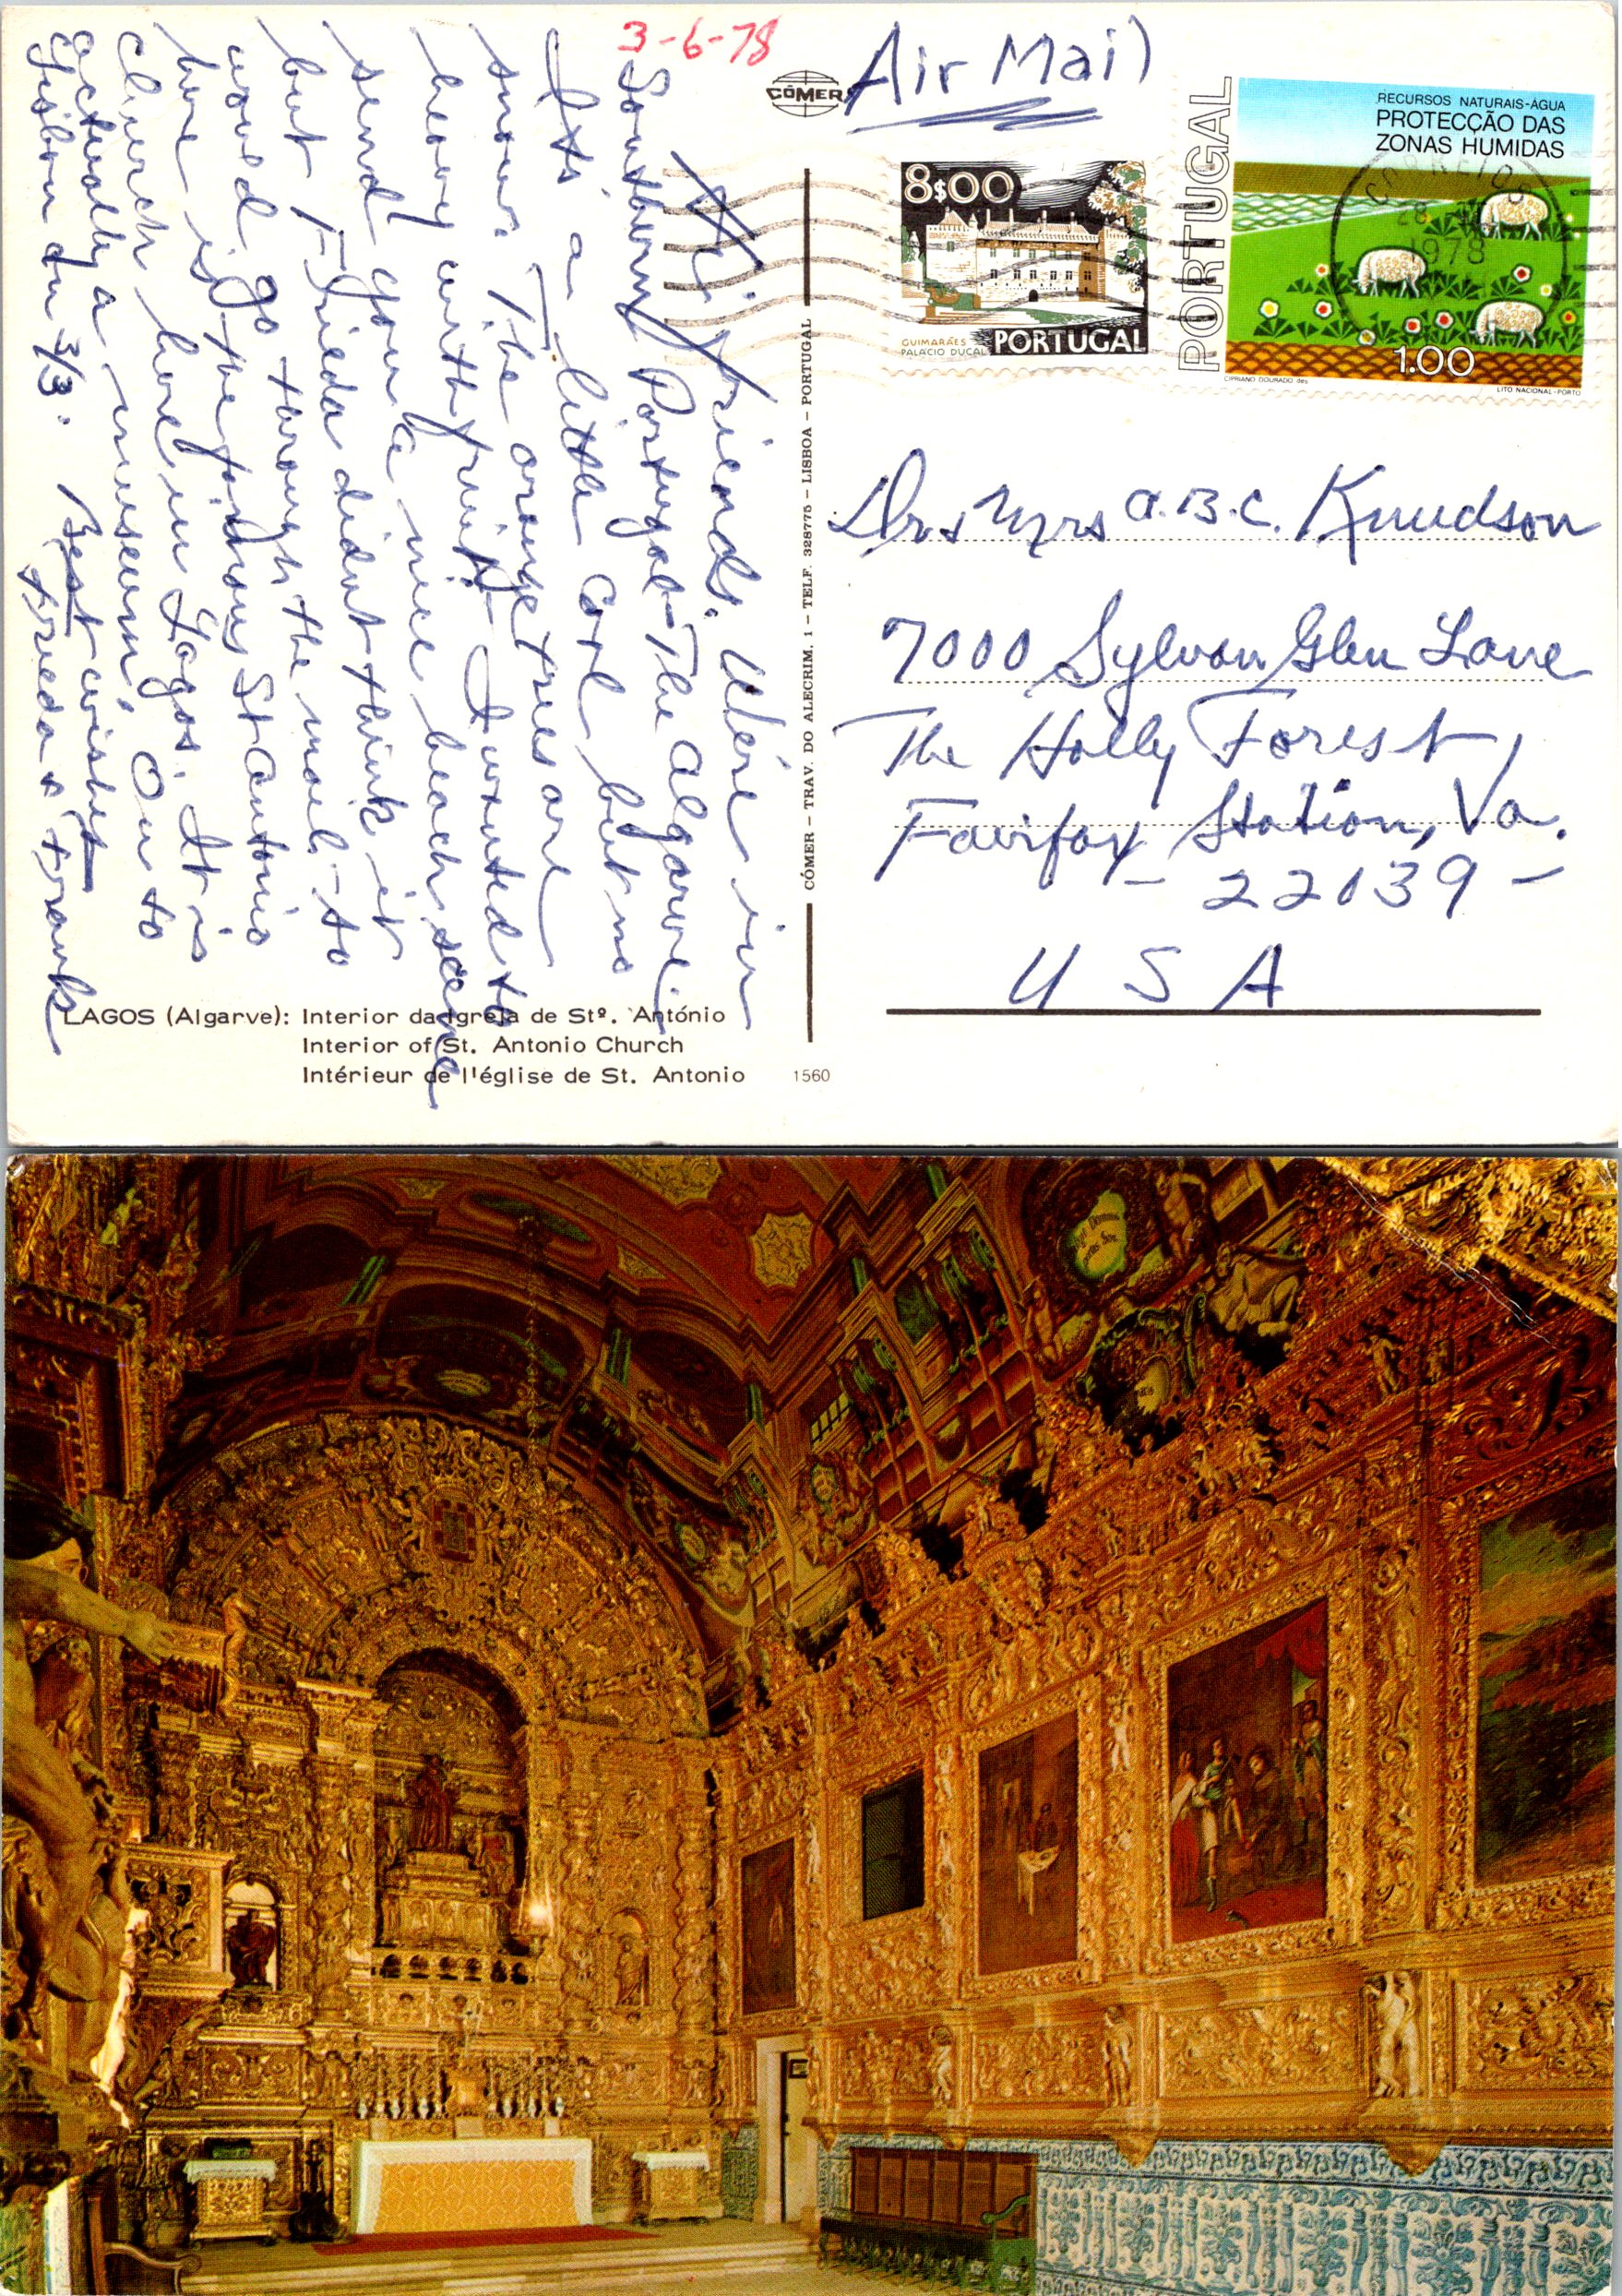 3-6-78
CÓMER
Air Mail
RECURSOS NATURAIS-ÁGUA
PROTECÇÃO DAS
ZONAS HUMIDAS
PORTUGAL
CORREIOS
28
1978
1.00
CIPRIANO DOURADO des
LITO NACIONAL-PORTO
8$00
GUIMARÃES
PALÁCIO DUCAL
PORTUGAL
Hi friends. We're in
Southern Portugal-The Algarve.
Its a little cool but no
snow. The orange trees are
heavy with fruit. I wanted to
send you a nice beach scene
but Frieda didnt think it
would go through the mail-so
here is the famous St Antonio
Church here in Lagos. It is
actually a museum. On to
Lisbon on 3/3. Best wishes
Frieda & Frank
CÓMER - TRAV. DO ALECRIM, 1 - TELF. 328775 - LISBOA - PORTUGAL
Dr & Mrs A.B.C. Knudson
7000 Sylvan Glen Lane
The Holly Forest,
Fairfax Station, Va.
- 22039 -
U S A
LAGOS (Algarve): Interior da Igreja de Stº. António
Interior of St. Antonio Church
Intérieur de l'église de St. Antonio
1560